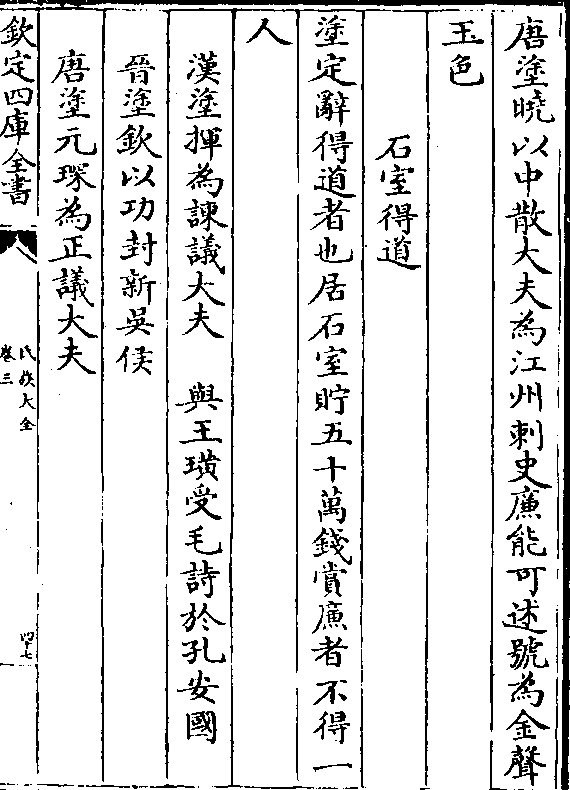 唐塗曉以中散大夫為江州刺史廉能可述號為金聲
玉色
石室得道
塗定辭得道者也居石室貯五十萬錢賞廉者不得一
人
漢塗揮為諫議大夫 與王璜受毛詩於孔安國
晉塗欽以功封新吳侯
唐塗元琛為正議大夫
欽定四庫全書
氏族大全
卷三
四十七